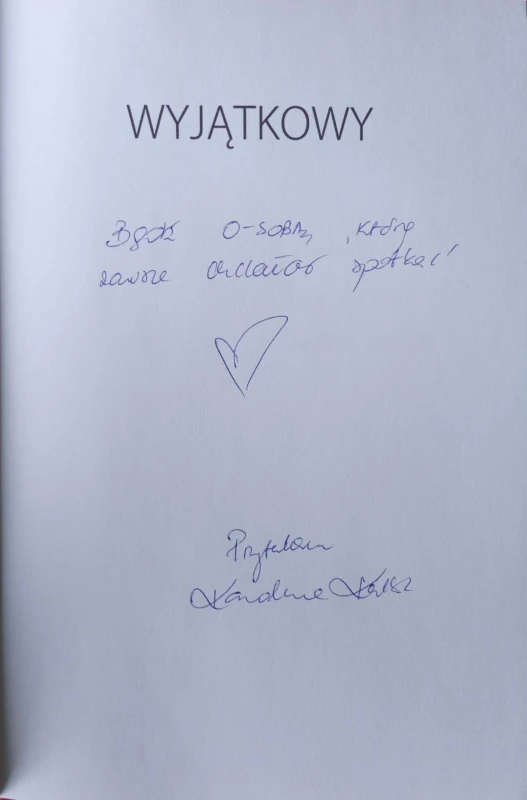 WYJĄTKOWY
Bądź O-SOBĄ, którą
zawsze chciałeś spotkać!
Przytulam
Karolina